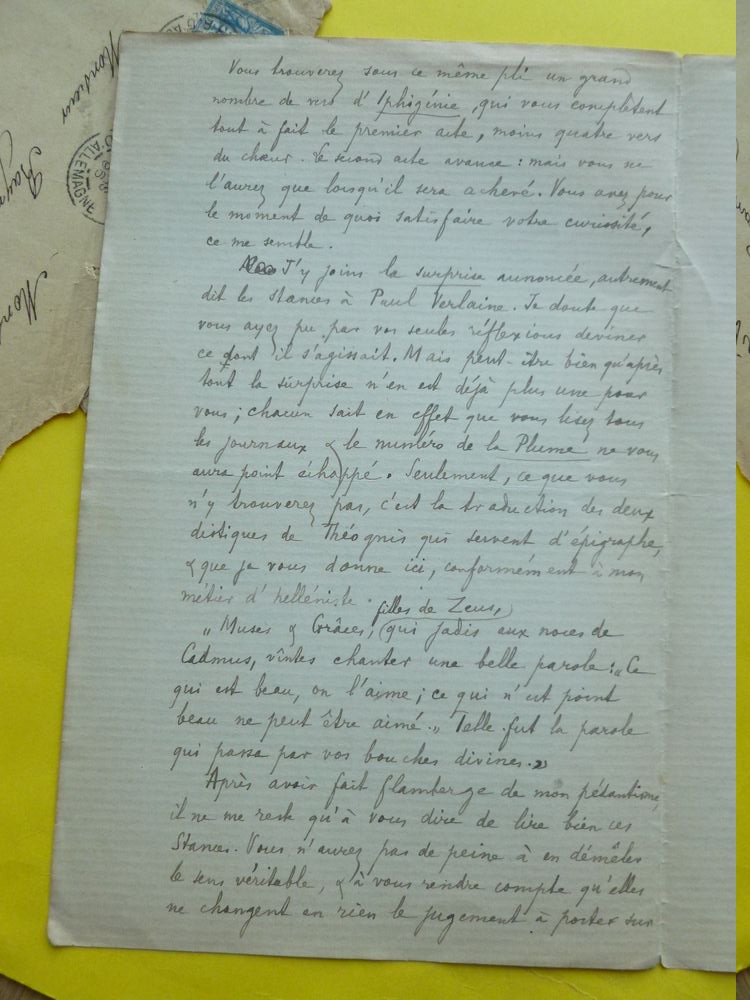 Monsieur
ALLEMAGNE
Vous trouverez sous ce même pli un grand
nombre de vers d'Iphigénie, qui vous complètent
tout à fait le premier acte, moins quatre vers
du chœur. Le second acte avance : mais vous ne
l'aurez que lorsqu'il sera achevé. Vous avez pour
le moment de quoi satisfaire votre curiosité,
ce me semble.
J'y joins la surprise annoncée, autrement
dit les stances à Paul Verlaine. Je doute que
vous ayez pu par vos seules réflexions deviner
ce dont il s'agissait. Mais peut-être bien qu'après
tout la surprise n'en est déjà plus une pour
vous ; chacun sait en effet que vous lisez tous
les journaux & le numéro de la Plume ne vous
aura point échappé. Seulement, ce que vous
n'y trouverez pas, c'est la traduction des deux
distiques de Théognis qui servent d'épigraphe,
& que je vous donne ici, conformément à mon
métier d'helléniste.
filles de Zeus,
„ Muses & Grâces, qui jadis aux noces de
Cadmus, vîntes chanter une belle parole : „ Ce
qui est beau, on l'aime ; ce qui n'est point
beau ne peut être aimé. „ Telle fut la parole
qui passa par vos bouches divines. »
Après avoir fait flamberge de mon pédantisme,
il ne me reste qu'à vous dire de lire bien ces
Stances. Vous n'aurez pas de peine à en démêler
le sens véritable, & à vous rendre compte qu'elles
ne changent en rien le jugement à porter sur